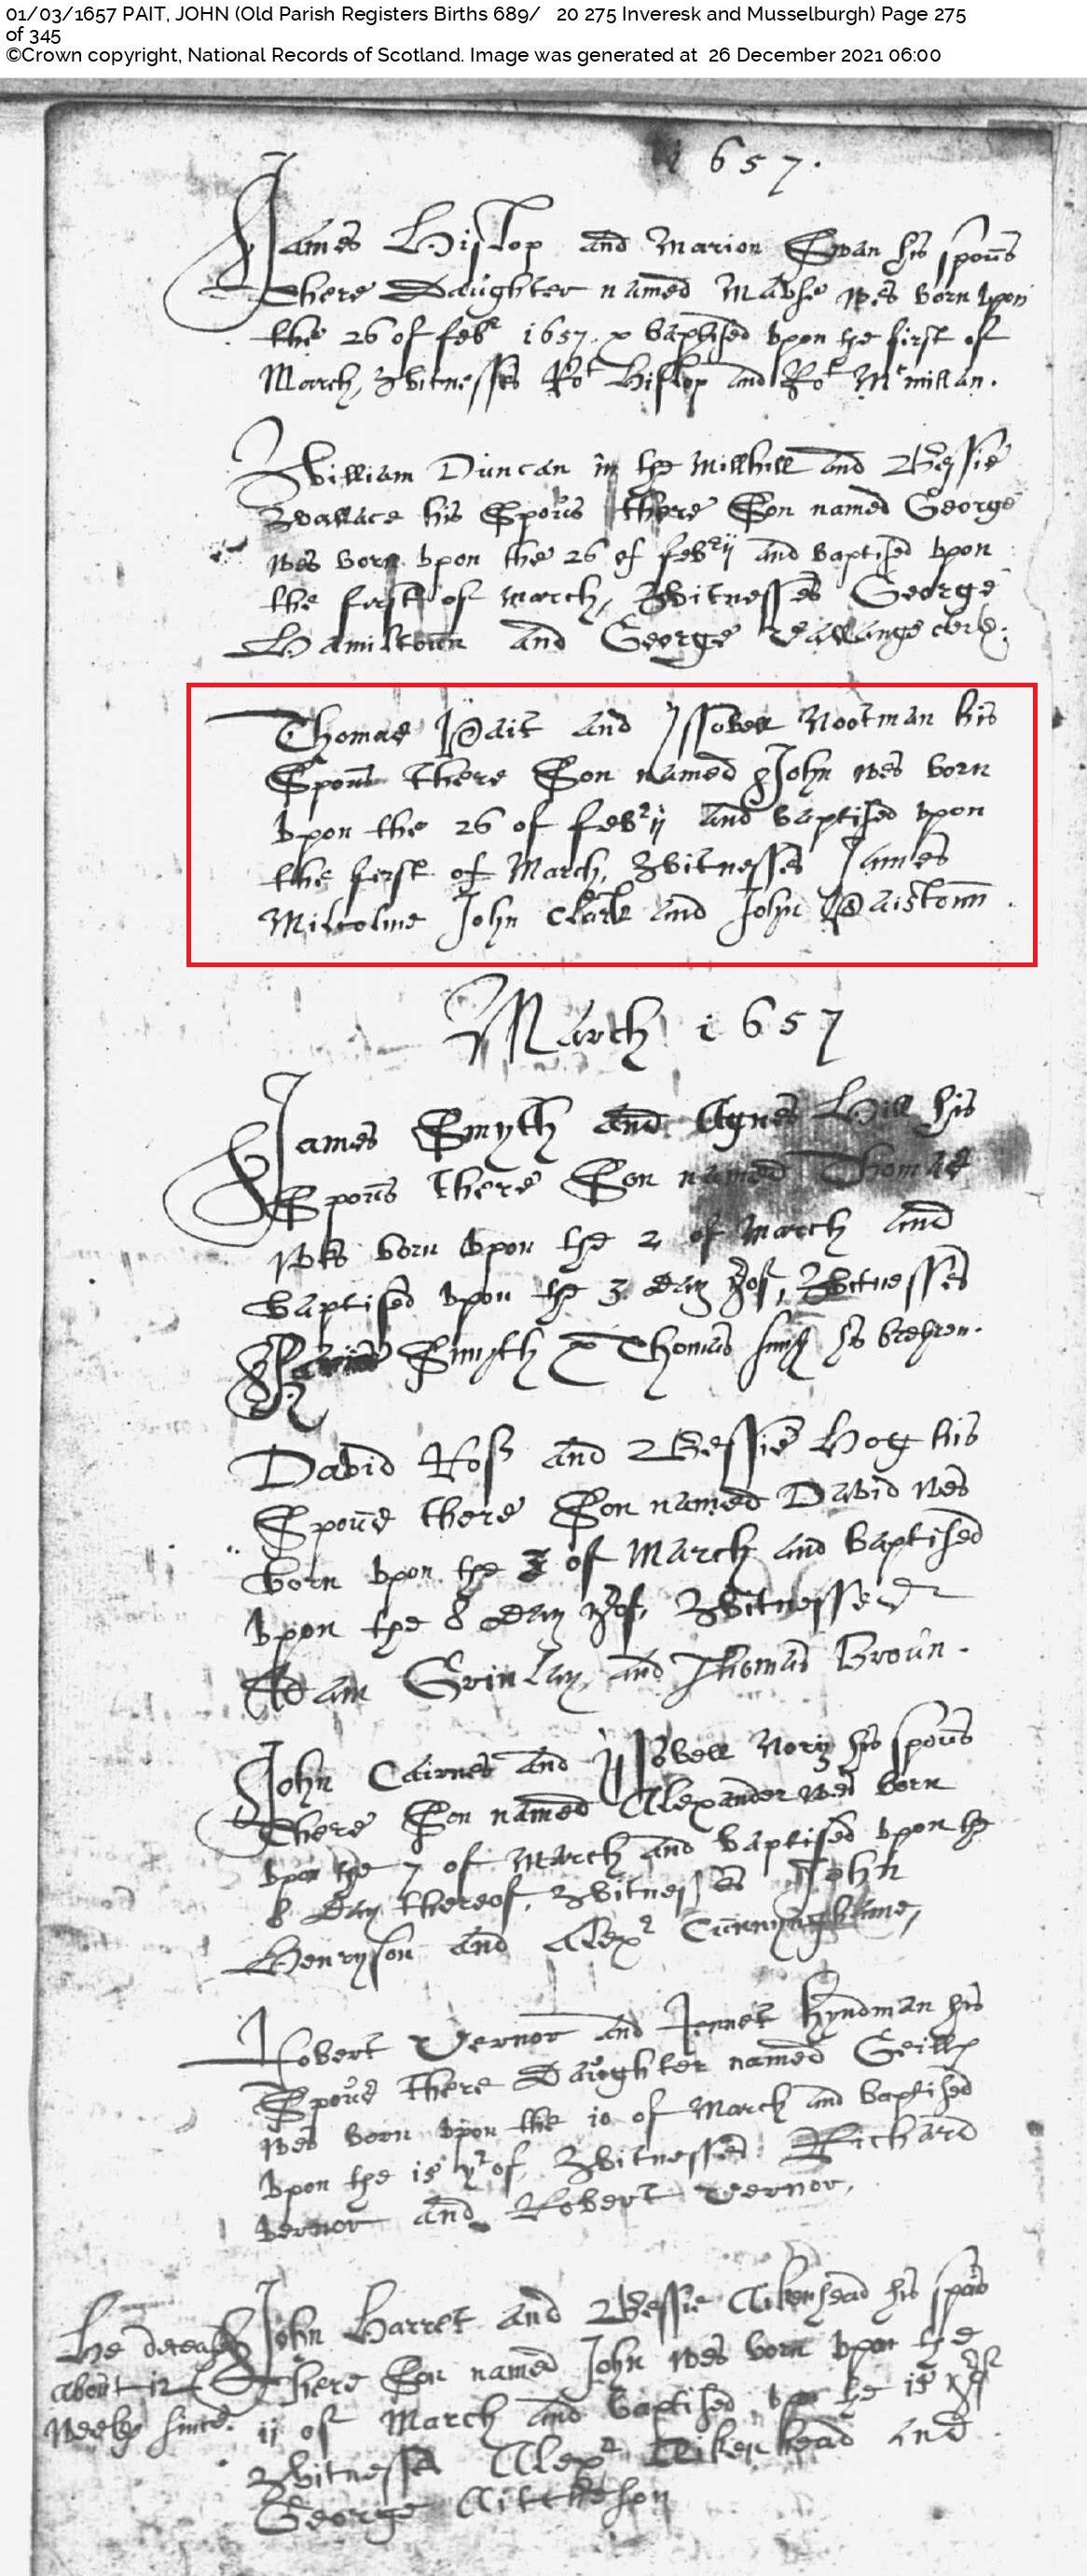 01/03/1657 PAIT, JOHN (Old Parish Registers Births 689/ 20 275 Inveresk and Musselburgh) Page 275
of 345
©Crown copyright, National Records of Scotland. Image was generated at 26 December 2021 06:00
1657.
James Hislop and Marion Swan his spous
there Daughter named Mavse wes born upon
the 26 of febr 1657. & baptised vpon the first of
March, Witnesses Rot Hislop and Rot Mcmillan.
William Duncan in the Millhill and Bessie
Wallace his Spous there Son named George
wes born vpon the 26 of febrij and baptised vpon
the first of march, Witnesses George
Hamiltoun and George clerk.
Thomas Pait and Issobell Nootman his
Spous there Son named John wes born
vpon the 26 of febrij and baptised vpon
the first of March, Witnesses James
Milcolme John Clark and John Paistoun.
March 1657
James Smyth and Agnes Hill his
Spous there Son named Thomas
wes born vpon the 2 of March and
baptised vpon the 3 day yrof, Witnesses
Smyth & Thomas his brehren.
David Ross and Bessie Hog his
Spous there Son named David wes
born vpon the of March and baptised
vpon the 8 day yrof, Witnesses
Adam Grinlay and Thomas Broun.
John Cairnes and Issobell Nory his spous
there Son named Alexander wes born
vpon the 7 of March and baptised vpon the
8 day thereof, Witnesses John
Henryson and Alexr Cunnynghame,
Robert Vernor and Jennet Hyndman his
Spous there Daughter named Geillis
wes born vpon the 10 of March and baptised
vpon the 15 yrof, Witnesses Richard
Vernor and Robert Vernor,
He deceased
about 12
weeks since.
John Harret and Bessie Aikenhead his spous
there Son named John wes born vpon the
11 of March and baptised vpon the 15 yrof
Witnesses Alexr Aikenhead and
George Aitcheson